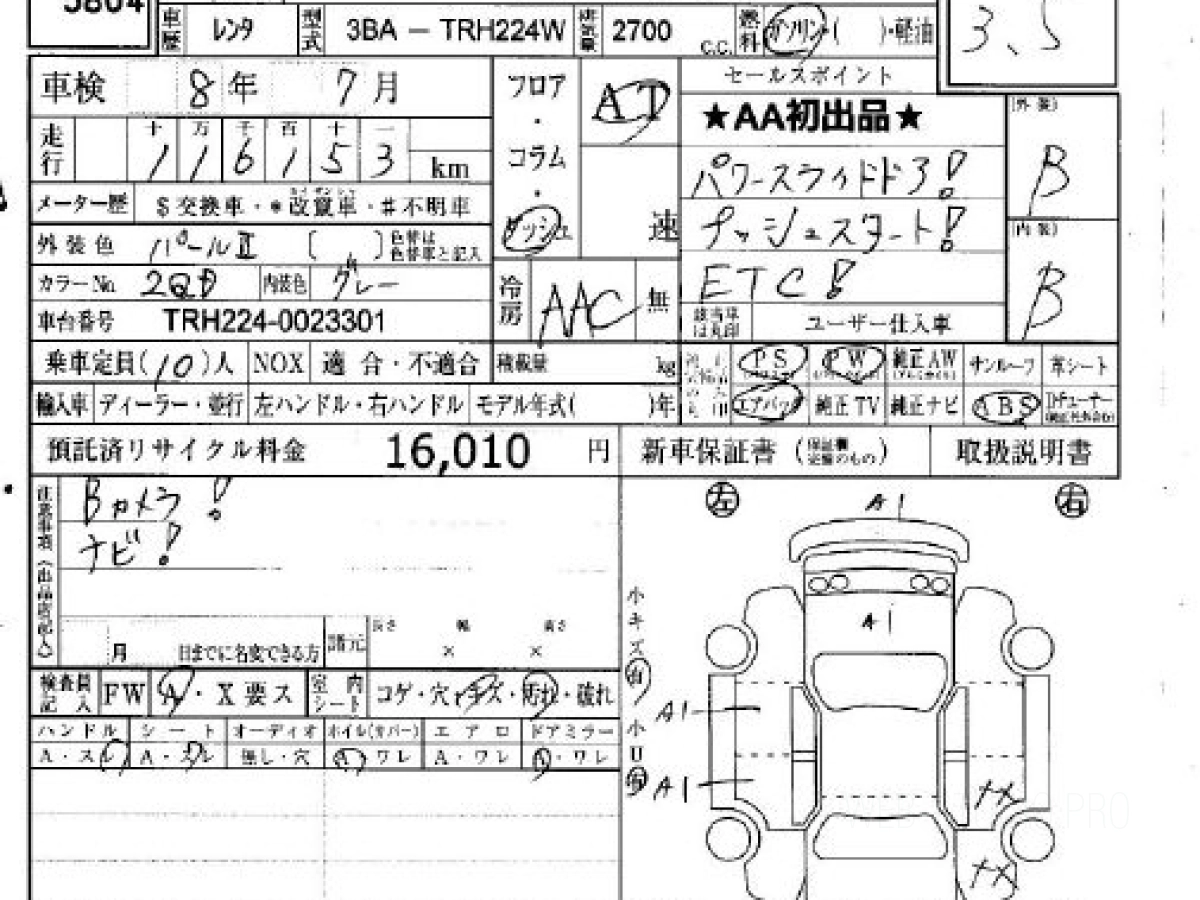 5804
車歴 レンタ 型式 3BA - TRH224W 排気量 2700 c.c. 燃料 ガソリン・( )・軽油
3、5
車検 8年 7月 フロア・コラム・ダッシュ AT 速
セールスポイント
★AA初出品★
走行 十 万 千 百 十 一
1 1 6 1 5 3 km
パワースライドドア!
[外装]
B
メーター歴 $交換車・*改竄車・#不明車
プッシュスタート!
外装色 パールⅡ ( ) 色替は色替車と記入
[内装]
B
カラーNo. 2QD 内装色 グレー
冷房 AAC 無
ETC!
車台番号 TRH224-0023301
該当車は丸印 ユーザー仕入車
乗車定員(10)人 NOX 適合・不適合 積載量 kg
PS PW 純正AW サンルーフ 革シート
輸入車 ディーラー・並行 左ハンドル・右ハンドル モデル年式( )年
エアバッグ 純正TV 純正ナビ ABS
預託済リサイクル料金 16,010 円 新車保証書 取扱説明書
注意事項(出品店記入)
Bカメラ!
ナビ!
左 A1 右
月 日までに名変できる方 諸元 長さ × 幅 × 高さ
小キズ有
A1
検査員記入 FW A・X要ス 室内シート コゲ・穴・キズ・汚れ・破れ
A1
ハンドル シート オーディオ ホイル(カバー) エアロ ドアミラー
小U有
A・スレ A・スレ 無し・穴 A ワレ A・ワレ A・ワレ
A1
PRO